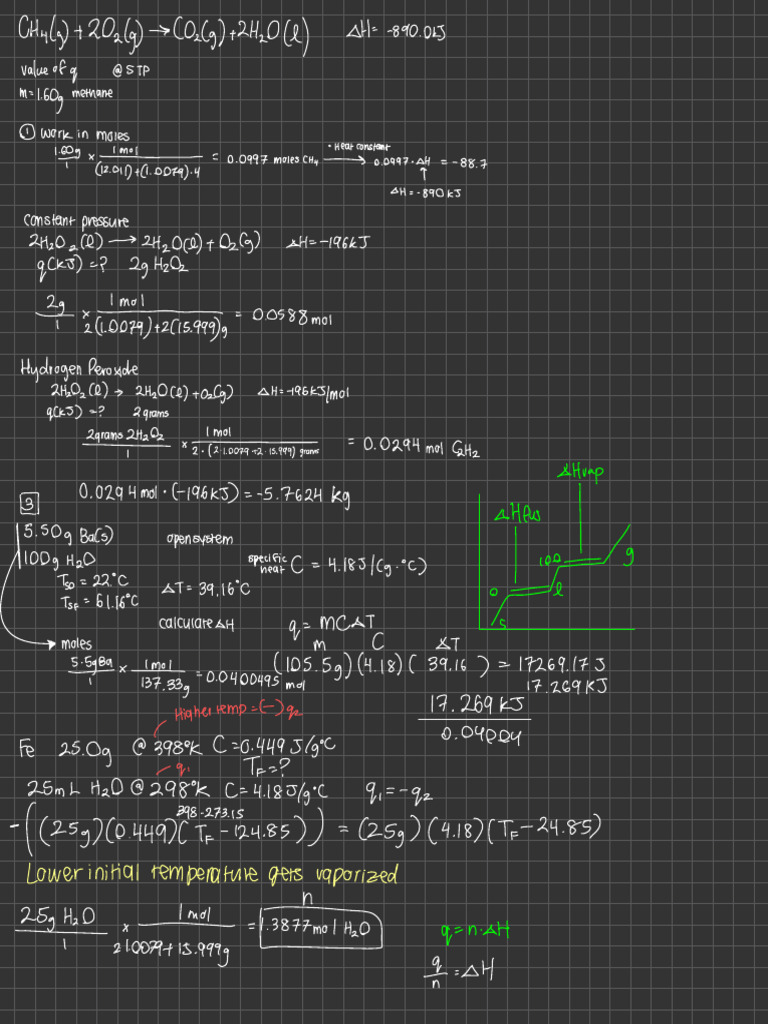 CH₄(g)+2O₂(g)→CO₂(g)+2H₂O(l) ΔH= -890.0kJ
value of q @STP
m=1.60g methane
① Work in moles
1.60g/1 × 1mol/((12.011)+(1.0079)·4) = 0.0997 moles CH₄ → 0.0997·ΔH = -88.7
• Heat constant
↑
ΔH=-890kJ
Constant pressure
2H₂O₂(l) → 2H₂O(l)+O₂(g) ΔH=-196kJ
q(kJ)=? 2g H₂O₂
2g/1 × 1mol/(2(1.0079)+2(15.999)g) = 0.0588 mol
Hydrogen Peroxide
2H₂O₂(l) → 2H₂O(l)+O₂(g) ΔH=-196kJ/mol
q(kJ)=? 2grams
2grams 2H₂O₂/1 × 1mol/(2·(2·1.0079+2·15.999) grams) = 0.0294 mol C₂H₂
0.0294mol·(-196kJ)=-5.7624 kg
3
5.50g Ba(s) open system
100g H₂O specific heat C = 4.18J/(g·°C)
Tso=22°C ΔT=39.16°C
Tsf=61.16°C
calculate ΔH q=MCΔT
→ moles m C ΔT
5.5gBa/1 × 1mol/137.33g =0.0400495 mol
(105.5g)(4.18)(39.16)=17269.17J
17.269KJ
17.269KJ/0.04004
ΔHvap
ΔHfus
100
g
0
l
s
Higher temp=(-)q₂
Fe 25.0g @398°K C=0.449J/g°C
q₁ TF=?
25mL H₂O@298°K C=4.18J/g°C q₁=-q₂
398-273.15
-((25g)(0.449)(TF-124.85))=(25g)(4.18)(TF-24.85)
Lower initial temperature gets vaporized
n
25g H₂O/1 × 1mol/(2·1.0079+15.999g) = 1.3877mol H₂O
q=n·ΔH
q/n=ΔH